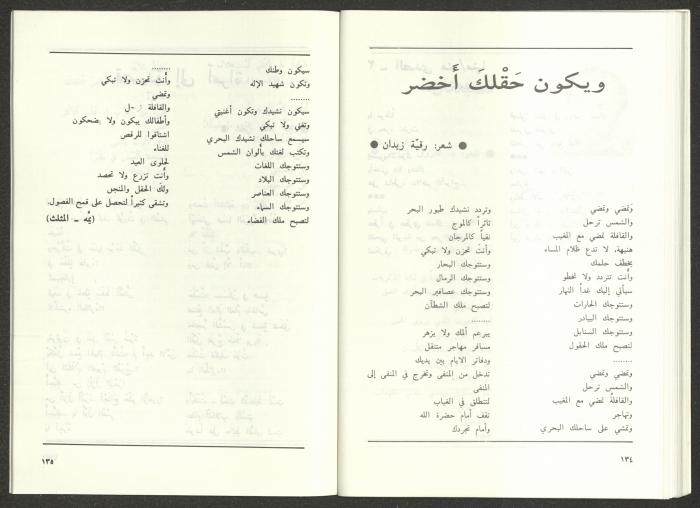 ويكون حَقْلكَ أَخضر
● شعر: رقيّة زيدان ●
وَتمضي وتمضي
والشمس ترحل
والقافلة تمضي مع المغيب
هنيهة، لا تدع ظلام المساء
يخطف حلمك
وأَنت تتردد ولا تخطو
سيأتي إليك غداً النهار
وستتوجك الحارات
وستتوجك البيادر
وستتوجك السنابل
لتصبح ملك الحقول
........
وتمضي وتمضي
والشمس ترحل
والقافلة تمضي مع المغيب
وتهاجر
وتمشي على ساحلك البحري
وتردد نشيدك طيور البحر
ثائراً كالموج
نقياً كالمرجان
وأنت تحزن ولا تبكي
وستتوجك البحار
وستتوجك الرمال
وستتوجك عصافير البحر
لتصبح ملك الشطآن
........
يبرعم ألمك ولا يزهر
مسافر مهاجر متنقل
ودفاتر الايام بين يديك
تدخل من المنفى وتخرج في المنفى إلى
المنفى
لتنطلق في الغياب
تقف أمام حضرة الله
وأمام تجردك
١٣٤
سيكون وطنك
وتكون شهيد الإله
........
سيكون نشيدك وتكون أغنيتي
وتغني ولا تبكي
سيسمع ساحلك نشيدك البحري
وتكتب لغتك بألوان الشمس
وستتوجك اللغات
وستتوجك البلاد
وستتوجك العناصر
وستتوجك السماء
لتصبح ملك الفضاء
........
وأنت تحزن ولا تبكي
وتمضي
والقافلة
وأطفالك يبكون ولا يضحكون
اشتاقوا للرقص
للغناء
لحلوى العيد
وأنت تزرع ولا تحصد
ولك الحقل والمنجل
وتشقى كثيراً لتحصل على قمح الفصول.
(يمَّه ـ المثلث)
١٣٥